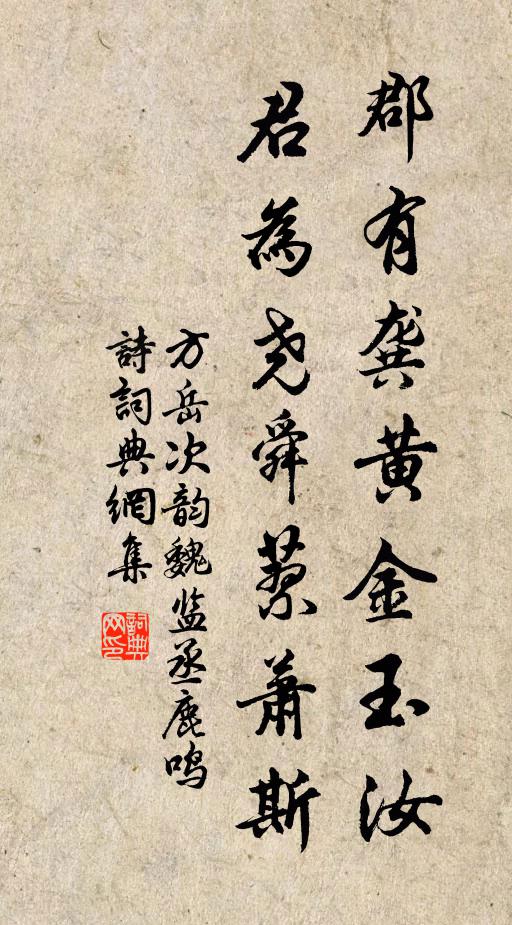 郡有龚黄金玉汝
君為尧舜蔾萧斯
方岳次韵魏监丞鹿鸣
詩詞典網集
詞典网印